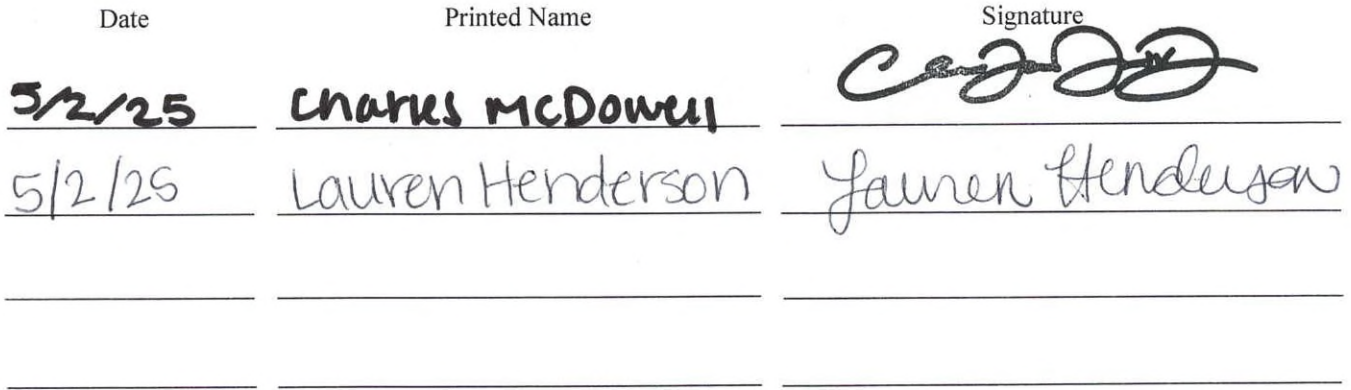 Date Printed Name Signature
5/2/25 Charles McDowell
5/2/25 Lauren Henderson Lauren Henderson